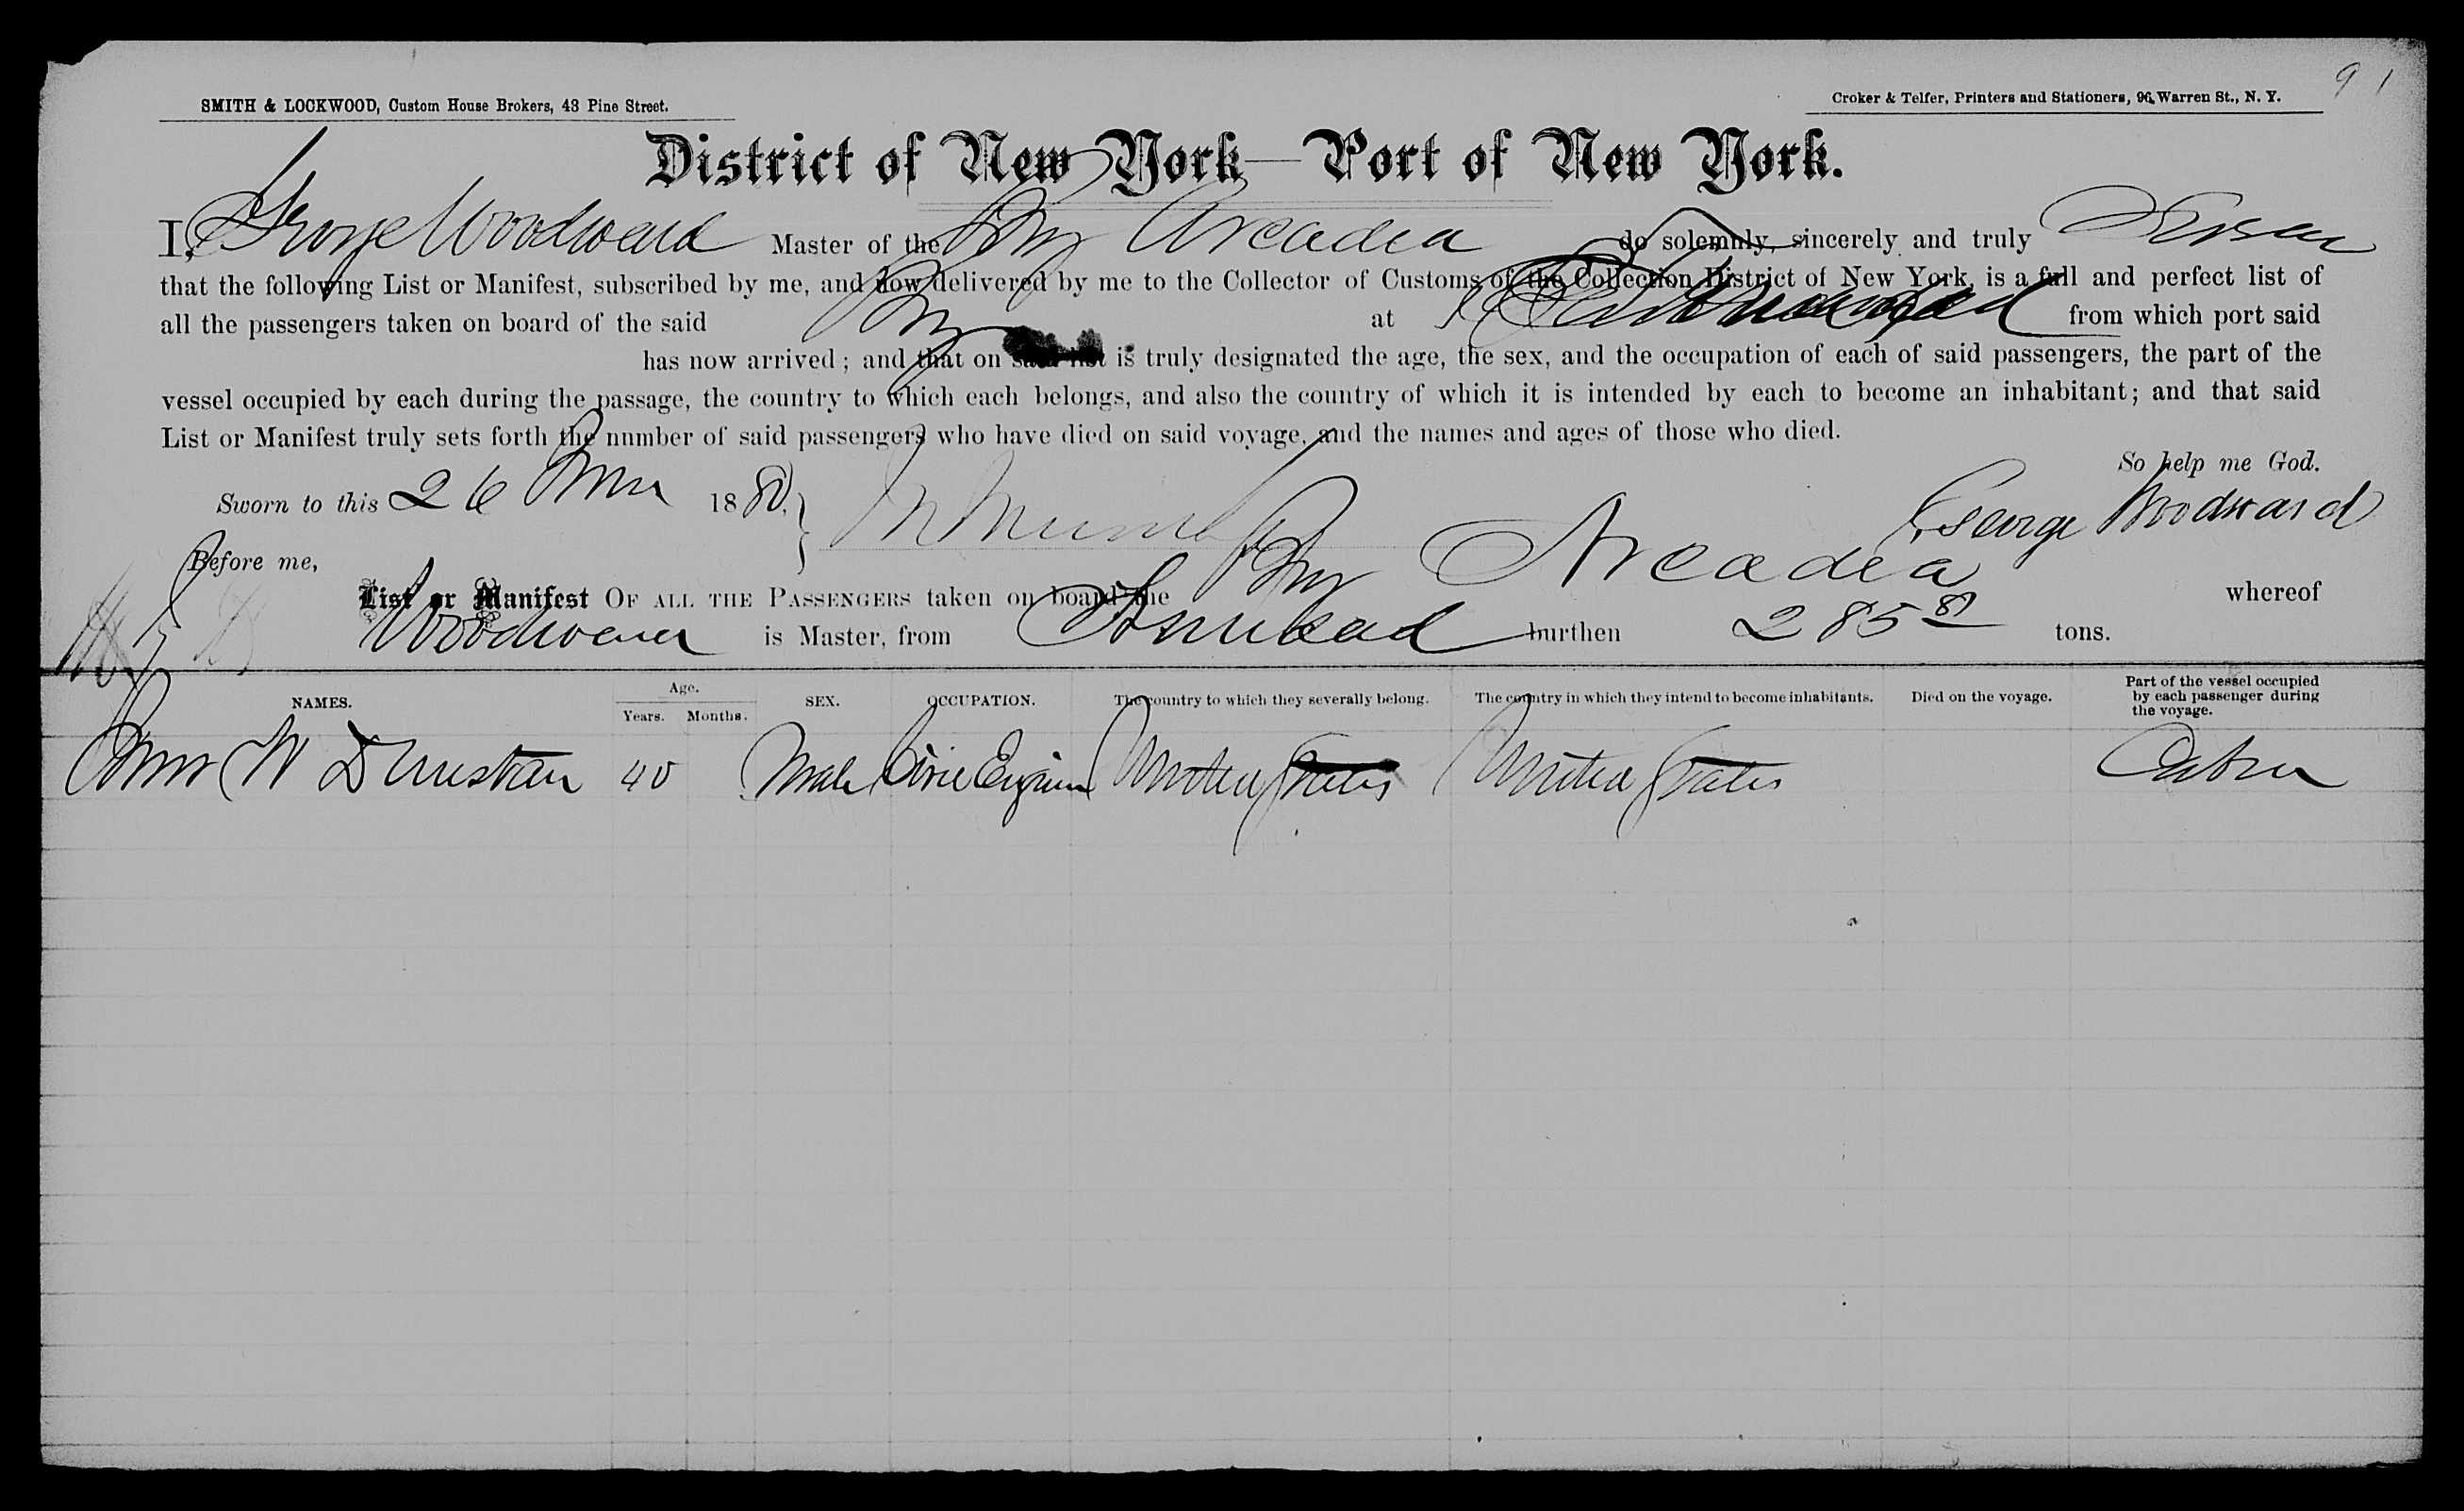 91
SMITH & LOCKWOOD, Custom House Brokers, 43 Pine Street.
Croker & Telfer, Printers and Stationers, 96 Warren St., N. Y.
District of New York—Port of New York.
I, George Woodward Master of the Brig Arcadia do solemnly, sincerely and truly Swear
that the following List or Manifest, subscribed by me, and now delivered by me to the Collector of Customs of the Collection District of New York, is a full and perfect list of
all the passengers taken on board of the said Brig at Trinidad from which port said
has now arrived; and that on said list is truly designated the age, the sex, and the occupation of each of said passengers, the part of the
vessel occupied by each during the passage, the country to which each belongs, and also the country of which it is intended by each to become an inhabitant; and that said
List or Manifest truly sets forth the number of said passengers who have died on said voyage, and the names and ages of those who died.
So help me God.
Sworn to this 26 June 1880, George Woodward
Before me,
List or Manifest OF ALL THE PASSENGERS taken on board the Brig Arcadia whereof
Woodward is Master, from Trinidad burthen 285 tons.
NAMES. Age. Years. Months. SEX. OCCUPATION. The country to which they severally belong. The country in which they intend to become inhabitants. Died on the voyage. Part of the vessel occupied by each passenger during the voyage.
W Dunstan 40 Male Civil Engineer United States United States Cabin